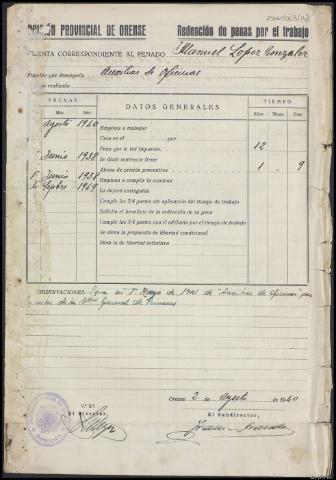 PRISIÓN PROVINCIAL DE ORENSE
Redención de penas por el trabajo
CUENTA CORRESPONDIENTE AL PENADO Manuel López González
Función que desempeña Auxiliar de Oficinas
realizado
FECHAS
DATOS GENERALES
TIEMPO
Mes Año
Años Meses Días
agosto 1940 Empieza a trabajar
Cesa en el por
Pena que le fué impuesta 12
Junio 1938 Se dictó sentencia firme
Abono de prisión preventiva 1 9
1º Junio 1938 Empieza a cumplir la condena
1949 La dejará extinguida
Cumple las 3/4 partes sin aplicación del tiempo de trabajo
Solicita el beneficio de la redención de su pena
Cumple las 3/4 partes con el adelanto por el tiempo de trabajo
Se eleva la propuesta de libertad condicional
Idem la de libertad definitiva
OBSERVACIONES: Cesa en 1º Mayo de 1941 de "Auxiliar de Oficinas" por
orden de la General de Prisiones
Orense 2 de agosto de 1940
V.º B.º
El Director,
El Subdirector,